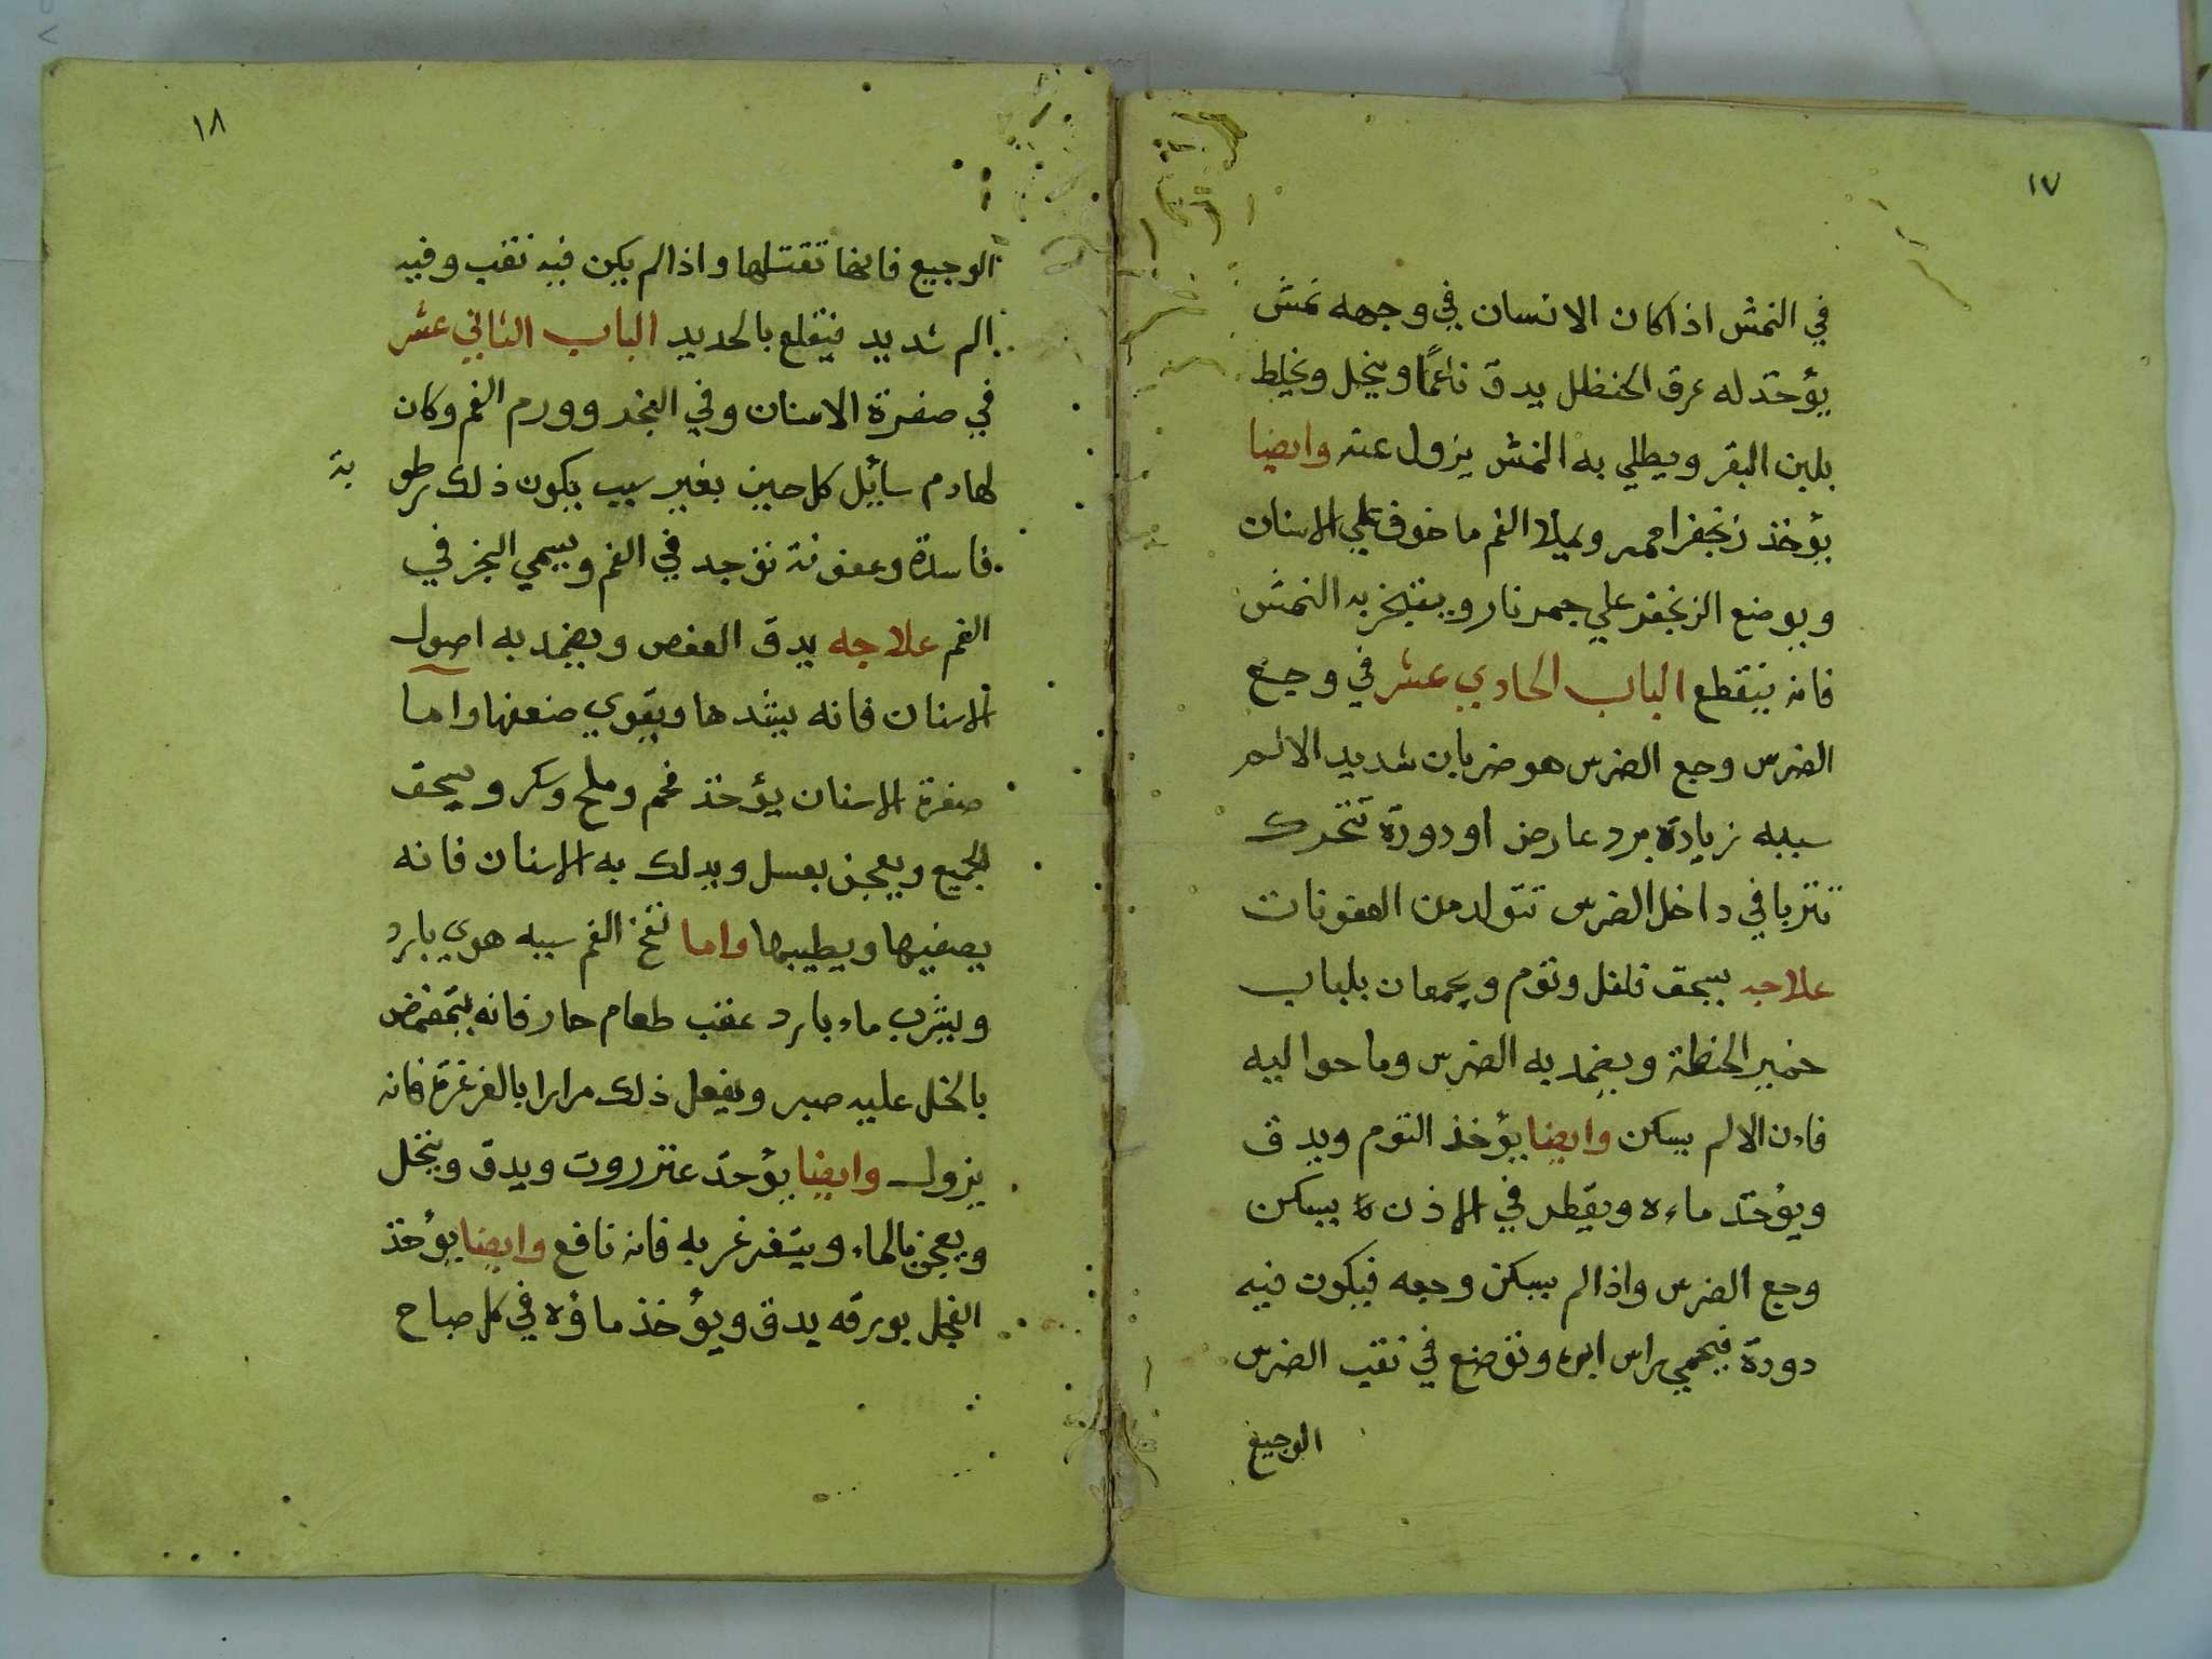 ١٧
في النمش اذا كان الانسان في وجهه نمش
يؤخذ له عرق الحنظل يدق ناعمًا وينخل ونخلط
بلبن البقر ويطلي به النمش يزول عنه وايضا
يؤخذ زنجفر احمر ويملا الفم ما خوف علي الاسنان
ويوضع الزنجفر علي جمر نار ويبتخر به النمش
فانه ينقطع الباب الحادي عشر في وجع
الضرس وجع الضرس هو ضربان شديد الالم
سببه زيادة برد عارض او دودة تتحرك
تتربا في داخل الضرس تتولد من العفونات
علاجه يسحق فلفل وثوم ويجمعان بلباب
خمير الحنطة ويضمد به الضرس وما حواليه
فان الالم يسكن وايضا يؤخذ الثوم ويدق
ويؤخذ ماءه ويقطر في الاذن يسكن
وجع الضرس واذا لم يسكن وجعه فيكون فيه
دودة فيحمي راس ابره وتوضع في ثقب الضرس
الوجيع
١٨
الوجيع فانها تقتلها واذا لم يكن فيه ثقب وفيه
الم شديد فيقلع بالحديد الباب الثاني عشر
في صفرة الاسنان وفي البخر وورم الفم وكان
لها دم سائل كل حين بغير سبب يكون ذلك رطو بة
فاسدة وعفونة توجد في الفم ويسمي البخر في
الفم علاجه يدق العفص ويضمد به اصول
الاسنان فانه يشدها ويقوي ضعفها واما
صفرة الاسنان يؤخذ فحم وملح وسكر ويسحق
الجميع ويعجن بعسل ويدلك به الاسنان فانه
يصفيها ويطيبها واما نفخ الفم سببه هوي بارد
ويشرب ماء بارد عقب طعام حار فانه يتمضمض
بالخل عليه صبر ويفعل ذلك مرارا بالغرغرة فانه
يزول وايضا يؤخذ عنزروت ويدق وينخل
ويعجن بالماء ويتغرغر به فانه نافع وايضا يؤخذ
الفجل بورقه يدق ويؤخذ ماؤه في كل صباح